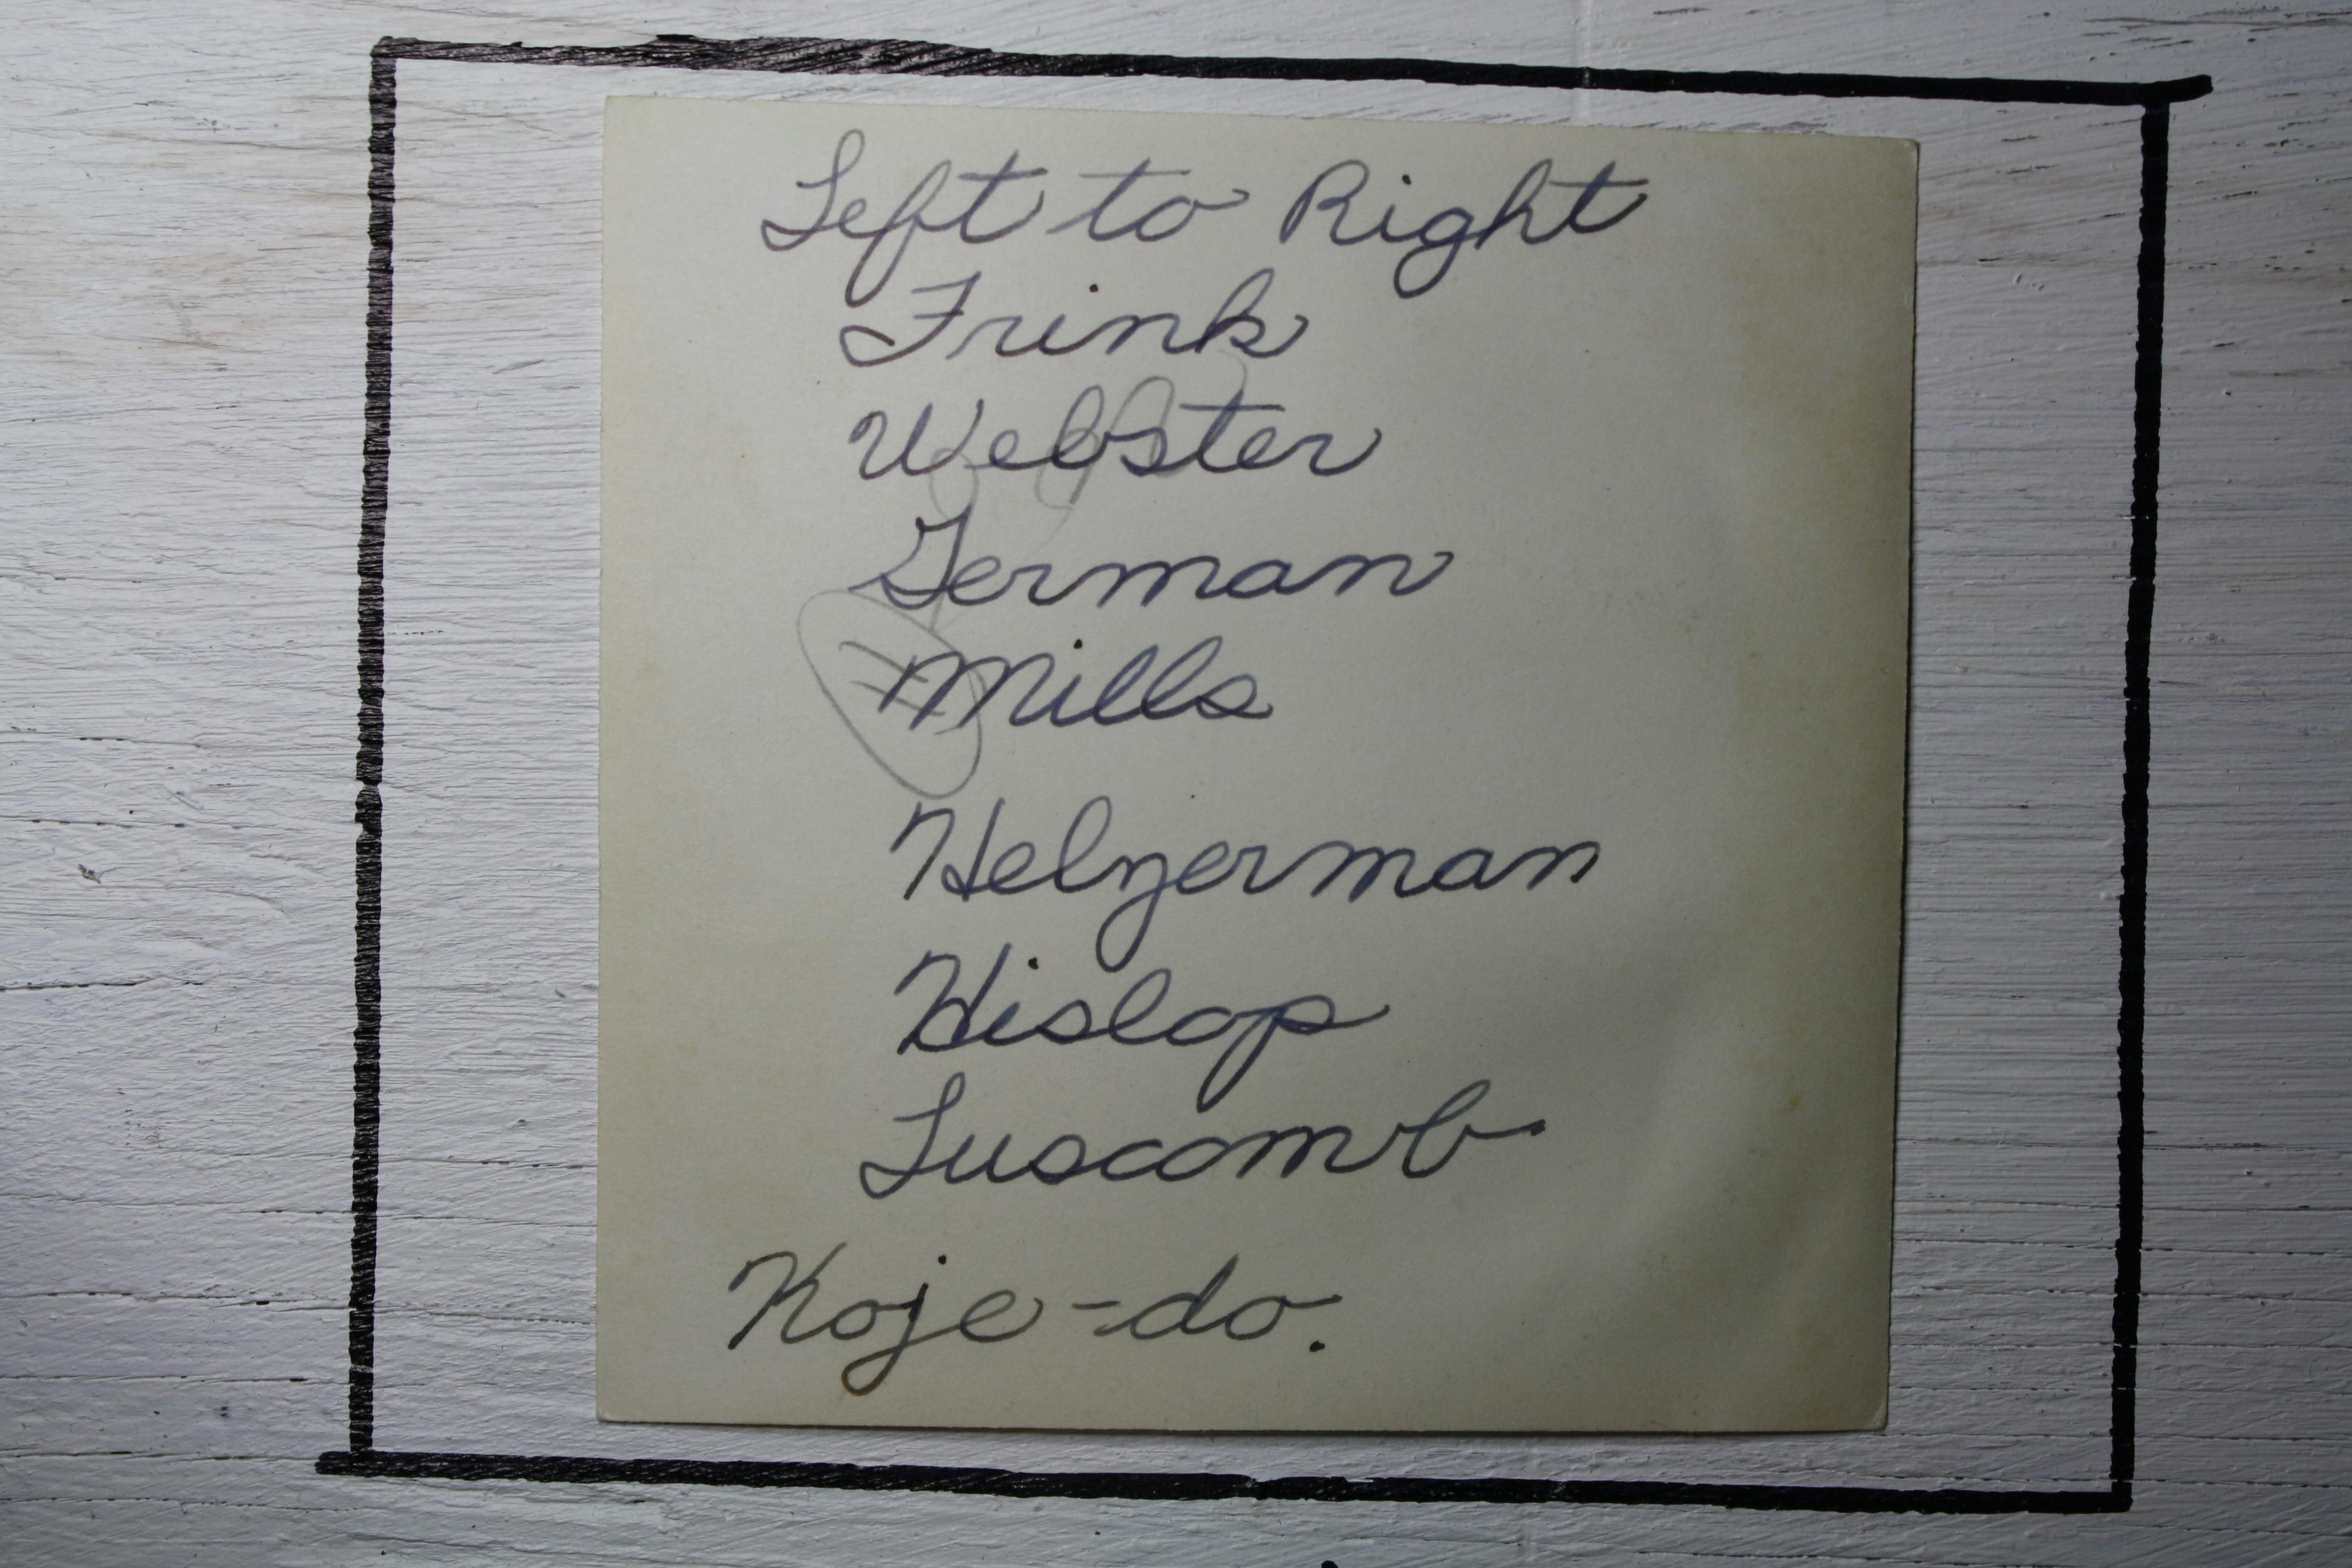 Left to Right
Frink
Webster
German
Mills
Helzerman
Hislop
Luscomb
Koje-do.